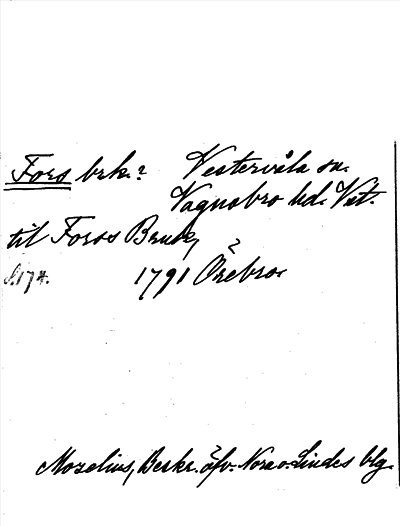 Fors brk.? Vestervåla sn.
Vagnsbro hd. Vst.
til Forss Bruk,
S. 174. 1791 Örebro.
Mozelius, Beskr. öfv. Nora o. Lindes blg.